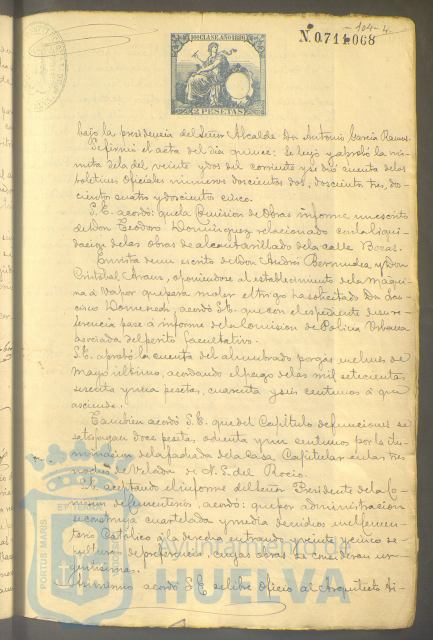 104-4
10ª CLASE. AÑO 1891
N. 0.711.068
2 PESETAS
bajo la presidencia del Señor Alcalde Dn Antonio García Ramos.
Se firmó el acta del dia quince: se leyó y aprobó la mi-
nuta de la del veinte y dos del corriente y se dió cuenta de los
boletines Oficiales números doscientos dos, doscientos tres, dos-
cientos cuatro y doscientos cinco.
S.E. acordó: que la Comision de Obras informe un escrito
de Don Teodoro Dominguez relacionado con la liqui-
dacion de las obras de alcantarillado de la calle Bocas.
En vista de un escrito de Don Andrés Bermudez y Don
Cristobal Arans, oponiendose al establecimiento de la Maqui-
na á vapor que para moler el trigo ha solicitado Dn
cisco Domenech, acordó S.E. que con el espediente de su re-
ferencia pase á informe de la Comision de Policia Urbana
asociada del perito facultativo.
S.E. aprobó la cuenta del alumbrado por gas en el mes de
Mayo último, acordando el pago de las mil setecientas
sesenta y una pesetas, cuarenta y seis centimos á que
asciende.
Tambien acordó S.E. que del Capítulo de funciones se
satisfagan doce pesetas, ochenta y un centimos por la ilu-
minacion de la fachada de la Casa Capitular en las tres
noches de Velada de N. S. del Rocio.
S.E. aceptando el informe del Señor Presidente de la Co-
mision de Cementerios, acordó: que por administracion
se construya cuartelada y media de nichos en el Cemen-
terio Católico á la derecha entrando y veinte y cinco se-
pulturas de preferencia cuyas obras se consideran ur-
gentísimas.
Asimismo acordó S.E. se libre oficio al Arquitecto
PORTUS MARIS
ET TERRAE
Ayuntamiento de
HUELVA